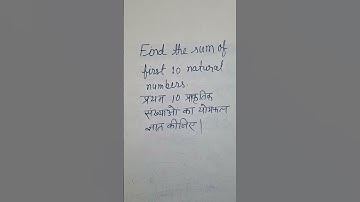 Find the sum of
first 10 natural
numbers.
प्रथम 10 प्राकृतिक
संख्याओं का योगफल
ज्ञात कीजिए|